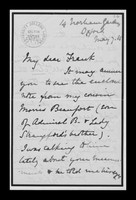 4 Norham Gardens
Oxford
My dear Frank
It may amuse
you to see the enclosed
note from my cousin
Morris Beaufort (son
of Admiral B. & Lady
Strangford's brother).
I was talking to him
lately about your
& he told me